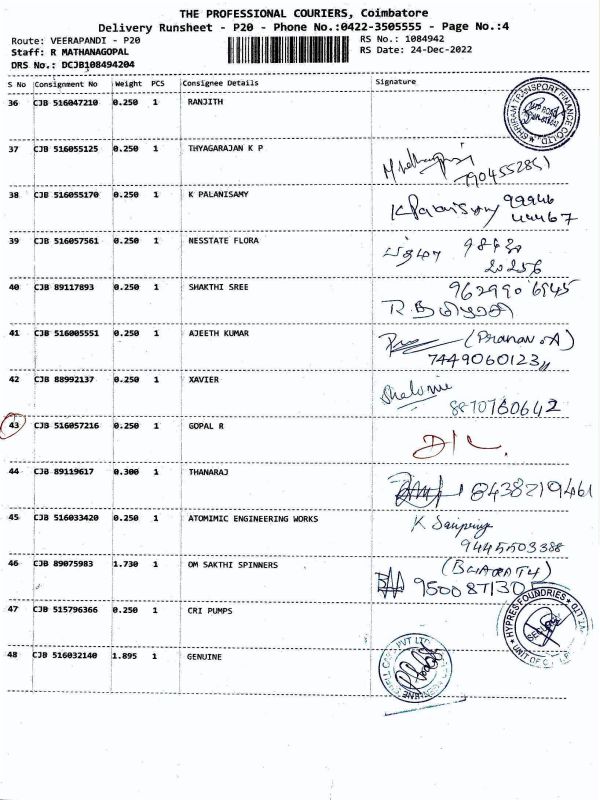 THE PROFESSIONAL COURIERS, Coimbatore
Delivery Runsheet - P20 - Phone No.:0422-3505555 - Page No.:4
Route: VEERAPANDI - P20 RS No.: 1084942
Staff: R MATHANAGOPAL RS Date: 24-Dec-2022
DRS No.: DCJB108494204
S No Consignment No Weight PCS Consignee Details Signature
36 CJB 516047210 0.250 1 RANJITH
SHRIRAM TRANSPORT FINANCE CO LTD
37 CJB 516055125 0.250 1 THYAGARAJAN K P
7904552851
38 CJB 516055170 0.250 1 K PALANISAMY K Palanisamy 99946
44467
39 CJB 516057561 0.250 1 NESSTATE FLORA
20256
40 CJB 89117893 0.250 1 SHAKTHI SREE 9629906945
41 CJB 516005551 0.250 1 AJEETH KUMAR (Pranav.A)
7449060123
42 CJB 88992137 0.250 1 XAVIER
8870760642
43 CJB 516057216 0.250 1 GOPAL R D/L
44 CJB 89119617 0.300 1 THANARAJ 8438219461
45 CJB 516033420 0.250 1 ATOMIMIC ENGINEERING WORKS
9445503388
46 CJB 89075983 1.730 1 OM SAKTHI SPINNERS (BHARATH)
950087130
47 CJB 515796366 0.250 1 CRI PUMPS
HYPRES FOUNDRIES
48 CJB 516032140 1.895 1 GENUINE